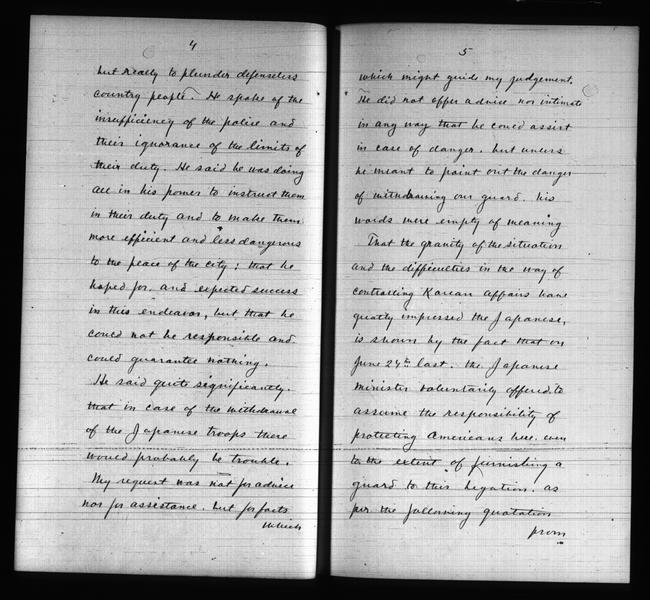 4
but really to plunder defenseless
country people. He spoke of the
insufficiency of the police and
their ignorance of the limits of
their duty. He said he was doing
all in his power to instruct them
in their duty and to make them
more efficient and less dangerous
to the peace of the city; that he
hoped for and expected success
in this endeavor, but that he
could not be responsible and
could guarantee nothing.
He said quite significantly.
that in case of the withdrawal
of the Japanese troops there
would probably be trouble.
My request was not for advice
nor for assistance. but for facts
which
5
which might guide my judgement.
He did not offer advice nor intimate
in any way that he could assist
in case of danger. but unless
he meant to point out the danger
of withdrawing our guard. his
words were empty of meaning
That the gravity of the situation
and the difficulties in the way of
controlling Korean affairs have
greatly impressed the Japanese,
is shown by the fact that on
June 24th last. the Japanese
Minister voluntarily offered to
assume the responsibility of
protecting Americans here. even
to the extent of furnishing a
guard to this Legation. as
per the following quotation
from